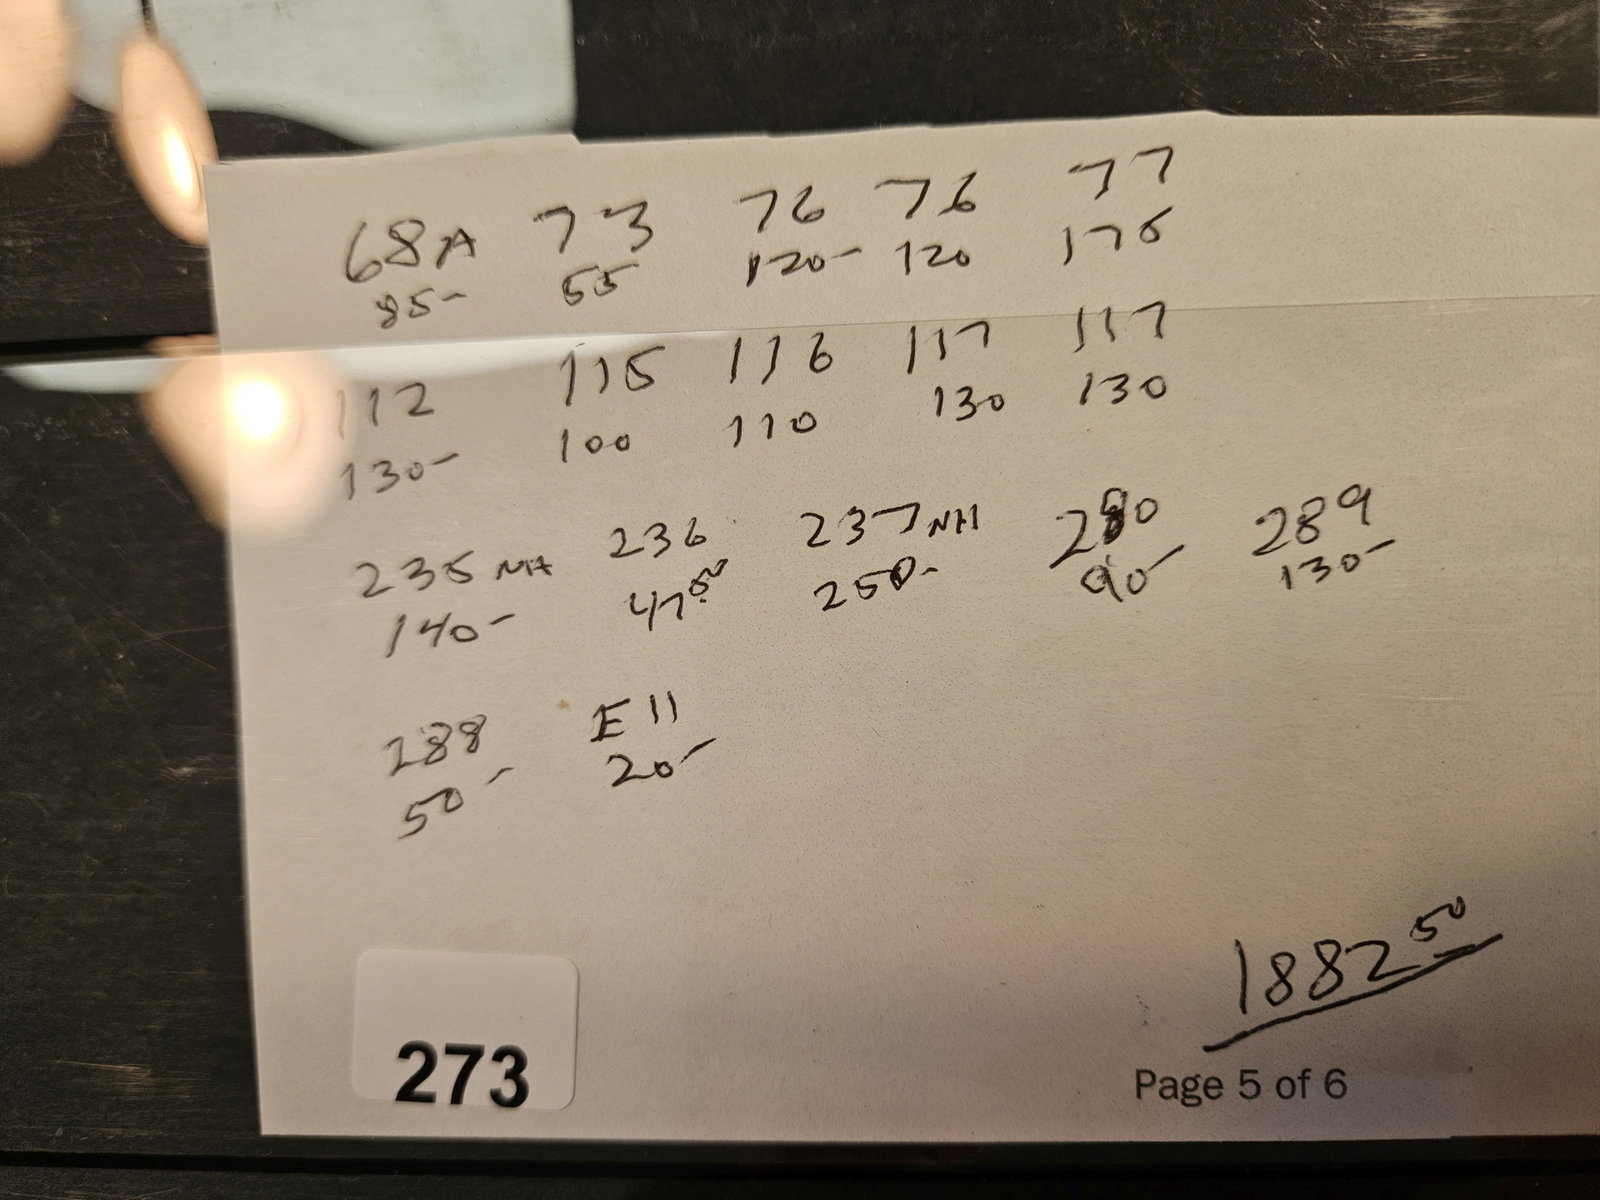 68A 73 76 76 77
85- 55 120- 120 175
112 115 116 117 117
130- 100 110 130 130
235 NH 236 237 NH 280 289
140- 47 50 250- 90- 130-
288 E11
50- 20-
1882 50
273
Page 5 of 6